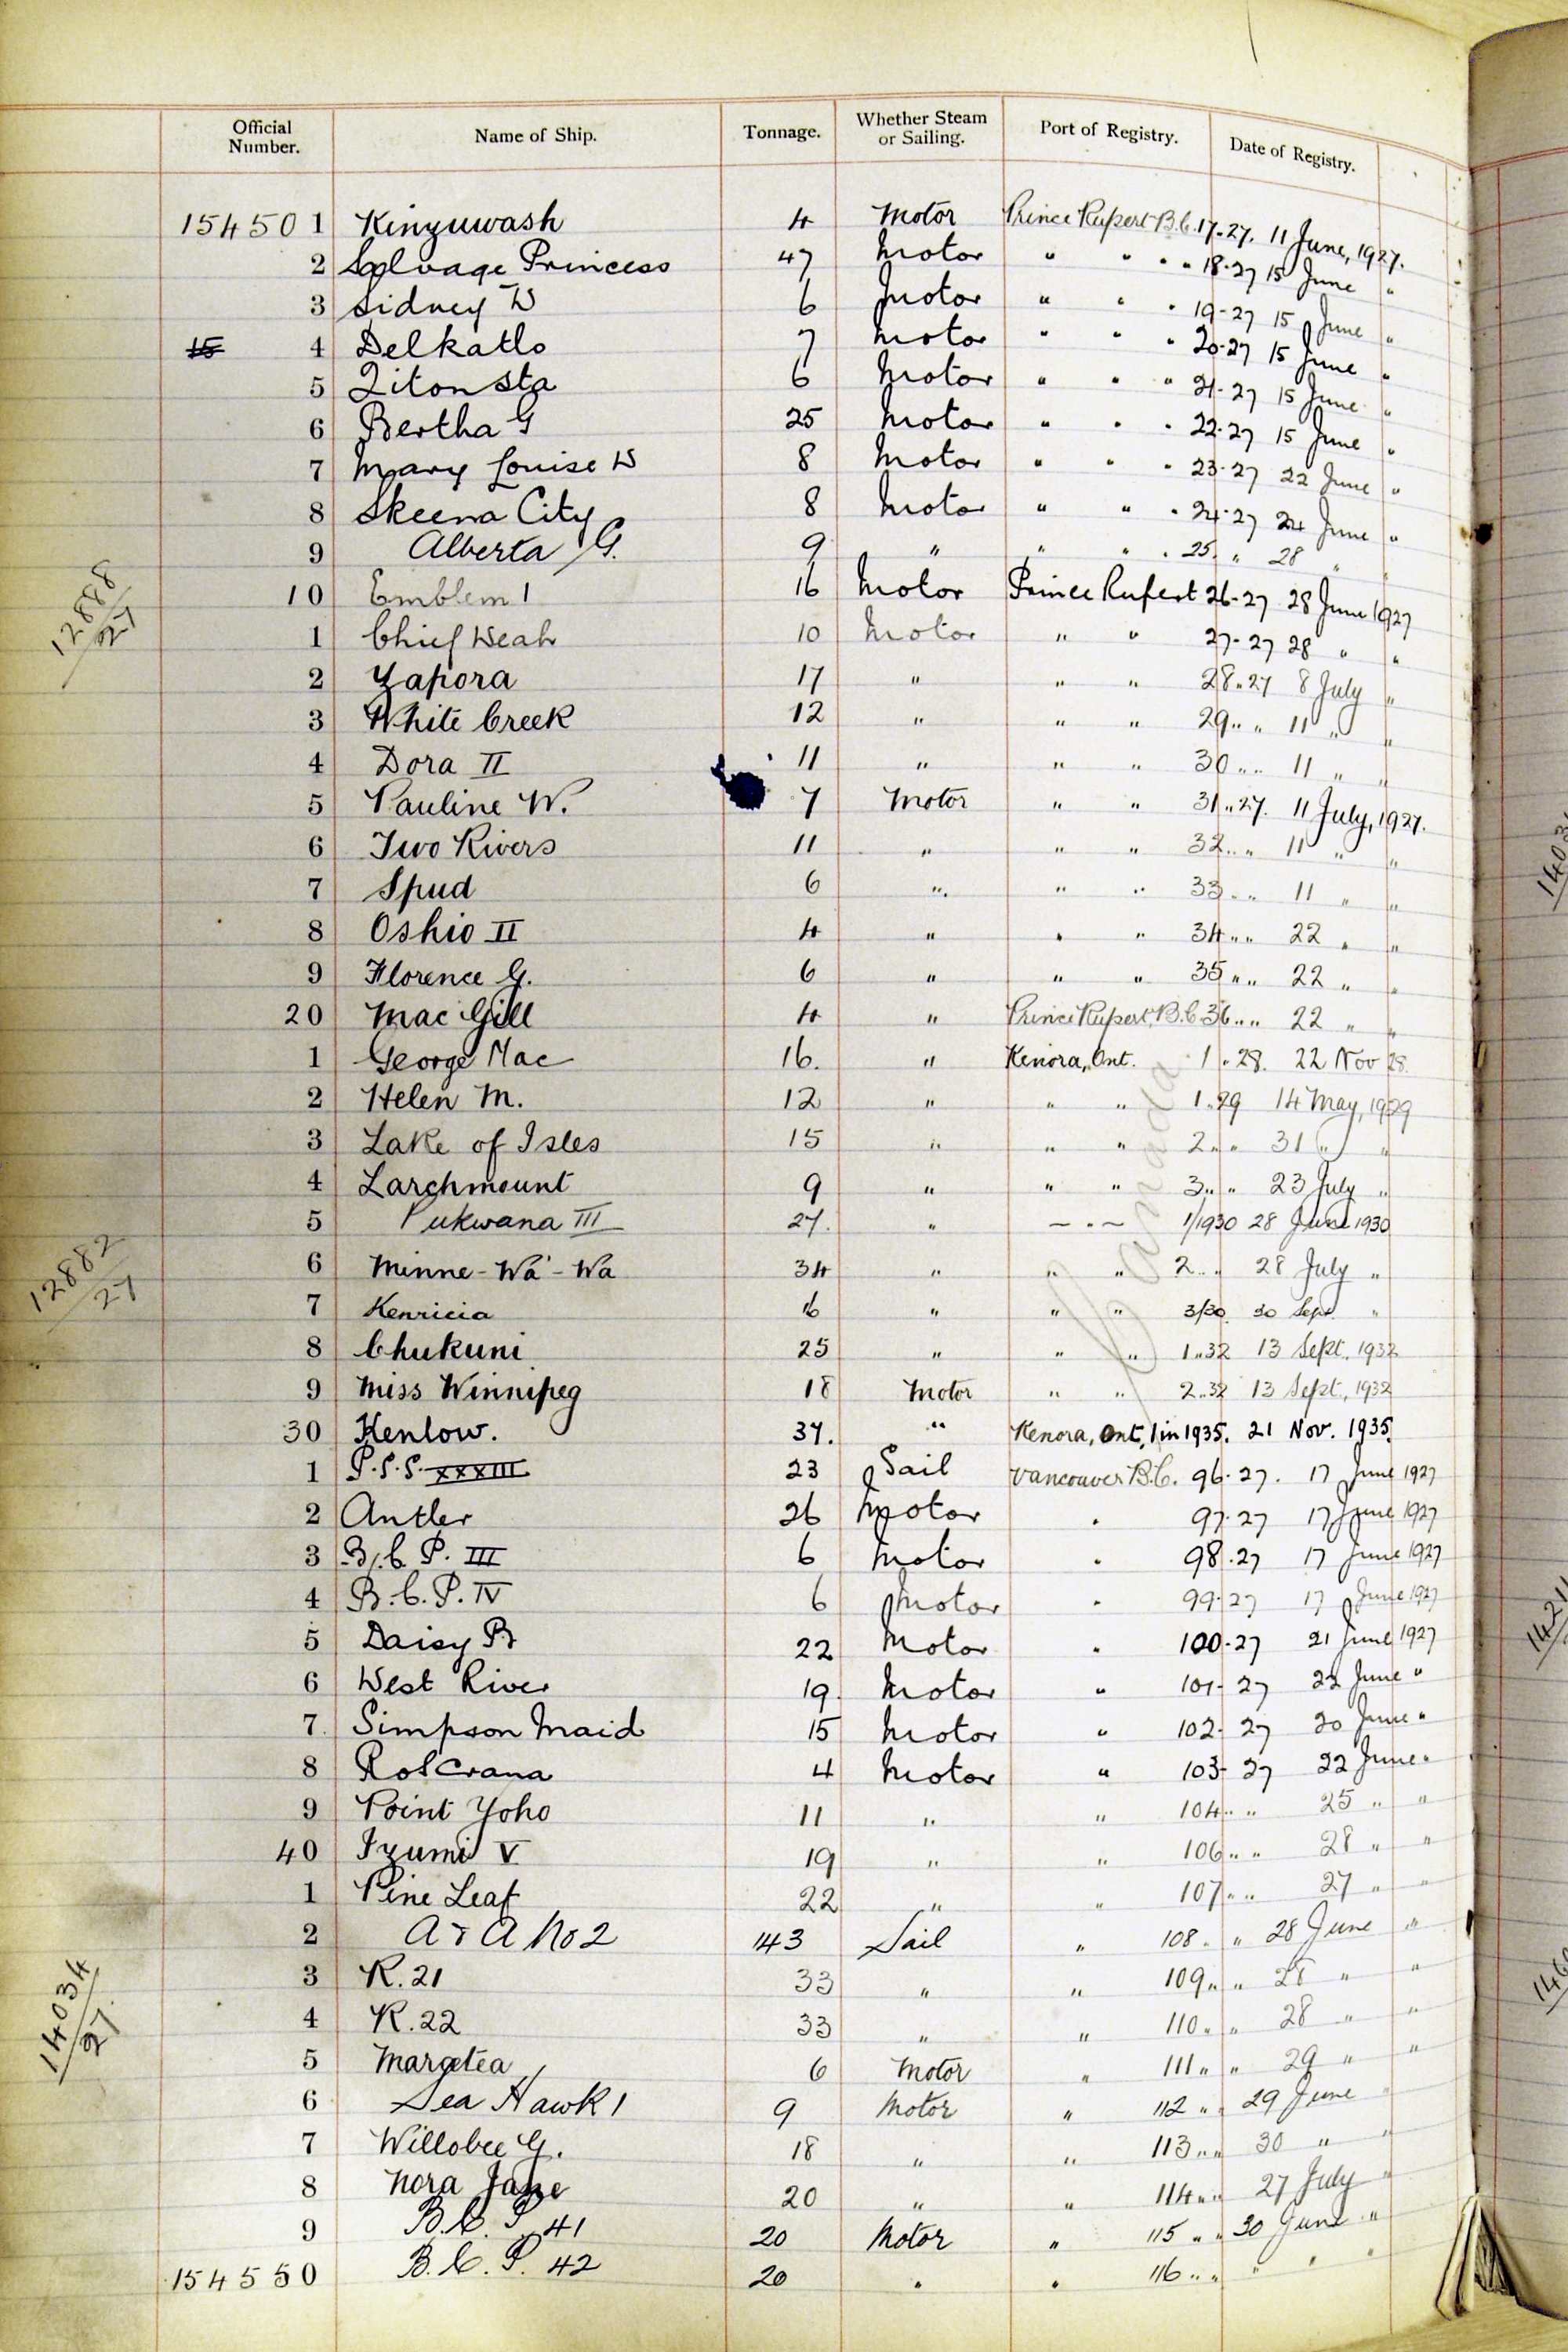 Official Number. Name of Ship. Tonnage. Whether Steam or Sailing. Port of Registry. Date of Registry.
154501 Kinguwash 4 Motor Prince Rupert B.C. 17-27. 11 June, 1927.
2 Salvage Princess 47 Motor " " " " 18-27 15 June "
3 Sidney W 6 Motor " " " 19-27 15 June "
15 4 Delkatlo 7 Motor " " " 20-27 15 June "
5 Zitonsta 6 Motor " " " 21-27 15 June "
6 Bertha G 25 Motor " " " 22-27 15 June "
7 Mary Louise W 8 Motor " " " 23-27 22 June "
8 Skeena City 8 Motor " " " 24-27 24 June "
9 Alberta G. 9 " " " " 25. " 28 " "
12888/27
10 Emblem 1 16 Motor Prince Rupert 26-27 28 June 1927
1 Chief Weah 10 Motor " " 27-27 28 " "
2 Zapora 17 " " " 28..27 8 July "
3 White Creek 12 " " " 29.. " 11 " "
4 Dora II 11 " " " 30 .. .. 11 " "
5 Pauline W. 7 Motor " " 31..27. 11 July, 1927.
6 Two Rivers 11 " " " 32.. " 11 " "
7 Spud 6 " " " 33 .. .. 11 " "
8 Oshio II 4 " " " 34 .. .. 22 " "
9 Florence G. 6 " " " 35 .. .. 22 " "
20 Mac Gill 4 " Prince Rupert, B.C. 36 .. .. 22 " "
1 George Mac 16. " Kenora, Ont. 1 .. 28. 22 Nov 28.
2 Helen M. 12 " " " 1..29 14 May, 1929
3 Lake of Isles 15 " " " 2.. " 31 " "
4 Larchmount 9 " " " 3.. " 23 July "
5 Pukwana III 27. " – " – 1/1930 28 June 1930
Canada
12882/27
6 Minne-Wa-Wa 34 " " " 2.. " 28 July "
7 Kenricia 16 " " " 3/30 30 Sept. "
8 Chukuni 25 " " " 1..32 13 Sept., 1932
9 Miss Winnipeg 18 Motor " " 2..32 13 Sept., 1932
30 Kenlow. 37. " Kenora, Ont, 1 in 1935. 21 Nov. 1935.
1 P.S.S. XXXIII 23 Sail Vancouver B.C. 96-27. 17 June 1927
2 Antler 26 Motor " 97-27 17 June 1927
3 B.C. P. III 6 Motor " 98-27 17 June 1927
4 B.C.P. IV 6 Motor " 99-27 17 June 1927
5 Daisy B 22 Motor " 100-27 21 June 1927
6 West River 19. Motor " 101-27 22 June "
7. Simpson Maid 15 Motor " 102-27 20 June "
8 Roscrana 4 Motor " 103-27 22 June "
9 Point Yoho 11 " " 104 .. .. 25 " "
40 Izumi V 19 " " 106 .. .. 28 " "
1 Pine Leaf 22 " " 107 .. .. 27 " "
2 A & A No 2 143 Sail " 108. " 28 June "
3 R. 21 33 " " 109 .. " 28 " "
14034/27
4 R. 22 33 " " 110 .. " 28 " "
5 Margetea 6 Motor " 111 .. " 29 " "
6 Sea Hawk 1 9 Motor " 112 " " 29 June "
7 Willobee G. 18 " " 113 .. .. 30 " "
8 Nora Jane 20 " " 114 .. .. 27 July "
9 B.C.P. 41 20 Motor " 115 " " 30 June "
154550 B.C.P. 42 20 " " 116 .. .. " " "